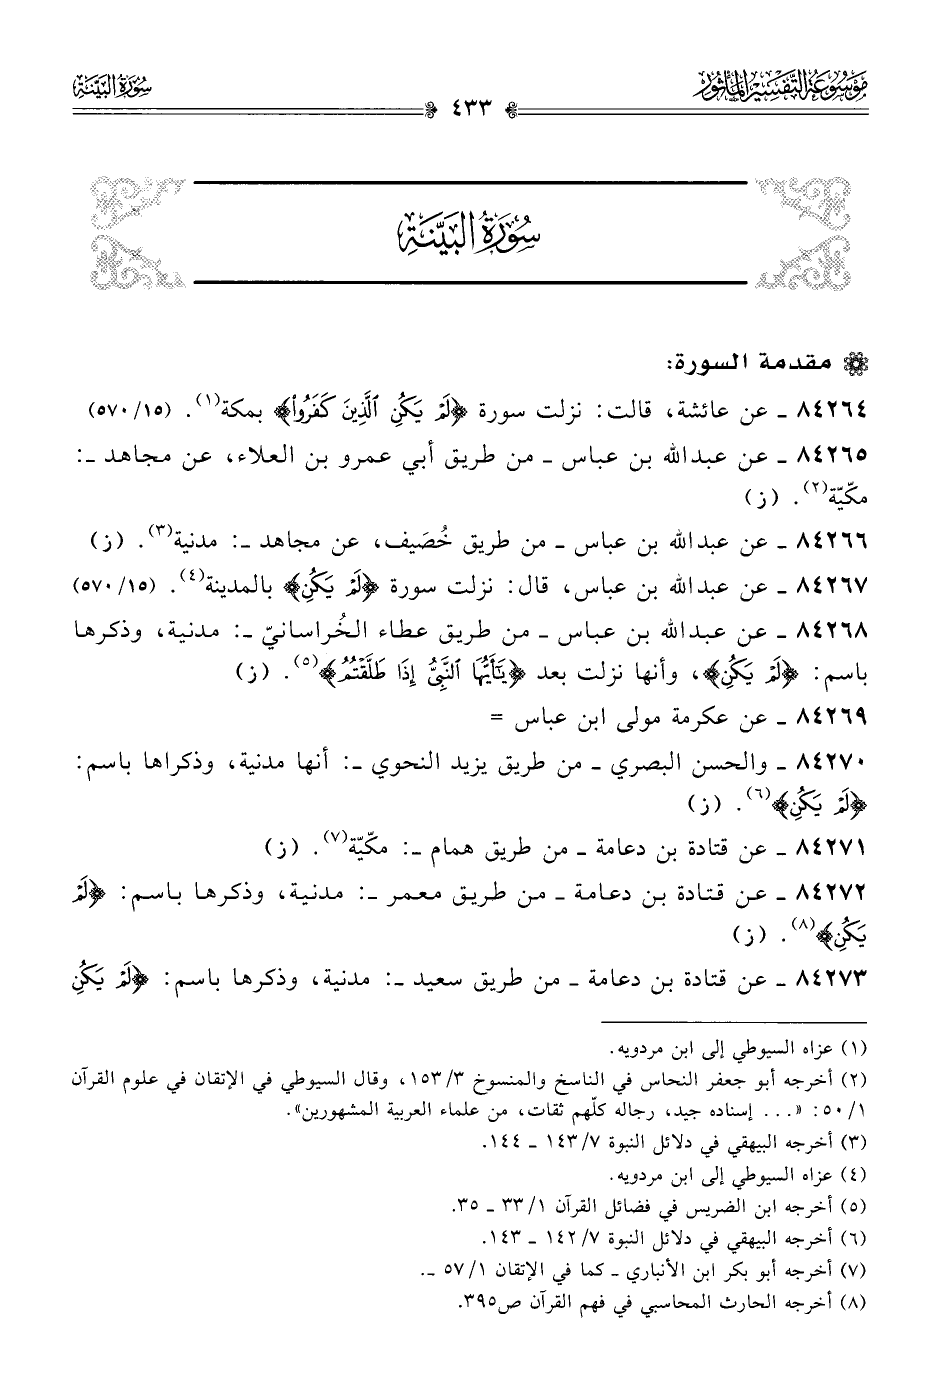 موسوعة التفسير المأثور
٤٣٣
سورة البينة
سُورَةُ البَيِّنَةِ
مقدمة السورة:
٨٤٢٦٤ ـ عن عائشة، قالت: نزلت سورة ﴿لَمْ يَكُنِ ٱلَّذِينَ كَفَرُوا۟﴾ بمكة(١). (١٥/ ٥٧٠)
٨٤٢٦٥ ـ عن عبدالله بن عباس ـ من طريق أبي عمرو بن العلاء، عن مجاهد ـ:
مكّيّة(٢). (ز)
٨٤٢٦٦ ـ عن عبدالله بن عباس ـ من طريق خُصَيف، عن مجاهد ـ: مدنية(٣). (ز)
٨٤٢٦٧ ـ عن عبدالله بن عباس، قال: نزلت سورة ﴿لَمْ يَكُنِ﴾ بالمدينة(٤). (١٥/ ٥٧٠)
٨٤٢٦٨ ـ عن عبدالله بن عباس ـ من طريق عطاء الخُراسانيّ ـ: مدنية، وذكرها
باسم: ﴿لَمْ يَكُنِ﴾، وأنها نزلت بعد ﴿يَـٰٓأَيُّهَا ٱلنَّبِىُّ إِذَا طَلَّقْتُمُ﴾(٥). (ز)
٨٤٢٦٩ ـ عن عكرمة مولى ابن عباس =
٨٤٢٧٠ ـ والحسن البصري ـ من طريق يزيد النحوي ـ: أنها مدنية، وذكراها باسم:
﴿لَمْ يَكُنِ﴾(٦). (ز)
٨٤٢٧١ ـ عن قتادة بن دعامة ـ من طريق همام ـ: مكّيّة(٧). (ز)
٨٤٢٧٢ ـ عن قتادة بن دعامة ـ من طريق معمر ـ: مدنية، وذكرها باسم: ﴿لَمْ
يَكُنِ﴾(٨). (ز)
٨٤٢٧٣ ـ عن قتادة بن دعامة ـ من طريق سعيد ـ: مدنية، وذكرها باسم: ﴿لَمْ يَكُنِ
(١) عزاه السيوطي إلى ابن مردويه.
(٢) أخرجه أبو جعفر النحاس في الناسخ والمنسوخ ٣/ ١٥٣، وقال السيوطي في الإتقان في علوم القرآن
١/ ٥٠: «... إسناده جيد، رجاله كلّهم ثقات، من علماء العربية المشهورين».
(٣) أخرجه البيهقي في دلائل النبوة ٧/ ١٤٣ ـ ١٤٤.
(٤) عزاه السيوطي إلى ابن مردويه.
(٥) أخرجه ابن الضريس في فضائل القرآن ١/ ٣٣ ـ ٣٥.
(٦) أخرجه البيهقي في دلائل النبوة ٧/ ١٤٢ ـ ١٤٣.
(٧) أخرجه أبو بكر ابن الأنباري ـ كما في الإتقان ١/ ٥٧ ـ.
(٨) أخرجه الحارث المحاسبي في فهم القرآن ص٣٩٥.